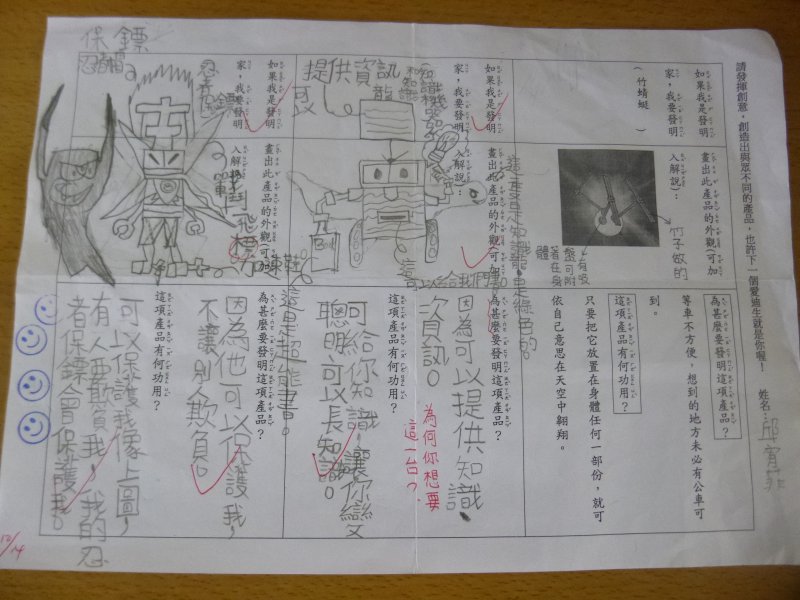 請發揮創意，創造出與眾不同的產品，也許下一個愛迪生就是你喔！
姓名：
如果我是發明
家，我要發明
（ 竹蜻蜓 ）
畫出此產品的外觀(可加
入解說)：
竹子做的
有吸
盤可附
著在身
體
為甚麼要發明這項產品？
等車不方便，想到的地方未必有公車可
到。
這項產品有何功用？
只要把它放置在身體任何一部份，就可
依自己意思在天空中翱翔。
如果我是發明
家，我要發明
知識龍
提供資訊
可以
畫出此產品的外觀(可加
入解說)：
這是知識龍是綠色的。
這可以給我們
這是超能書。
為甚麼要發明這項產品？
因為可以提供知識、
資訊。
為何你想要
這一台？
這項產品有何功用？
可給你知識，讓你變又
聰明可以長知識。
如果我是發明
家，我要發明
忍者保鏢
保鏢
忍者帽
畫出此產品的外觀(可加
入解說)：
飛鏢
為甚麼要發明這項產品？
因為他可以保護我，
不讓別人欺負。
這項產品有何功用？
可以保護我像上圖，
有人要欺負我，我的忍
者保鏢會保護我。
12/14